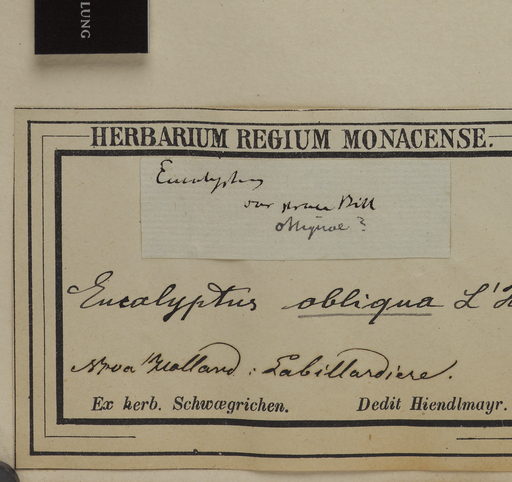 LUNG
HERBARIUM REGIUM MONACENSE.
Eucalyptus
var
obliquae?
Eucalyptus obliqua L'H
Nova Holland: Labillardiere.
Ex herb. Schwægrichen. Dedit Hiendlmayr.